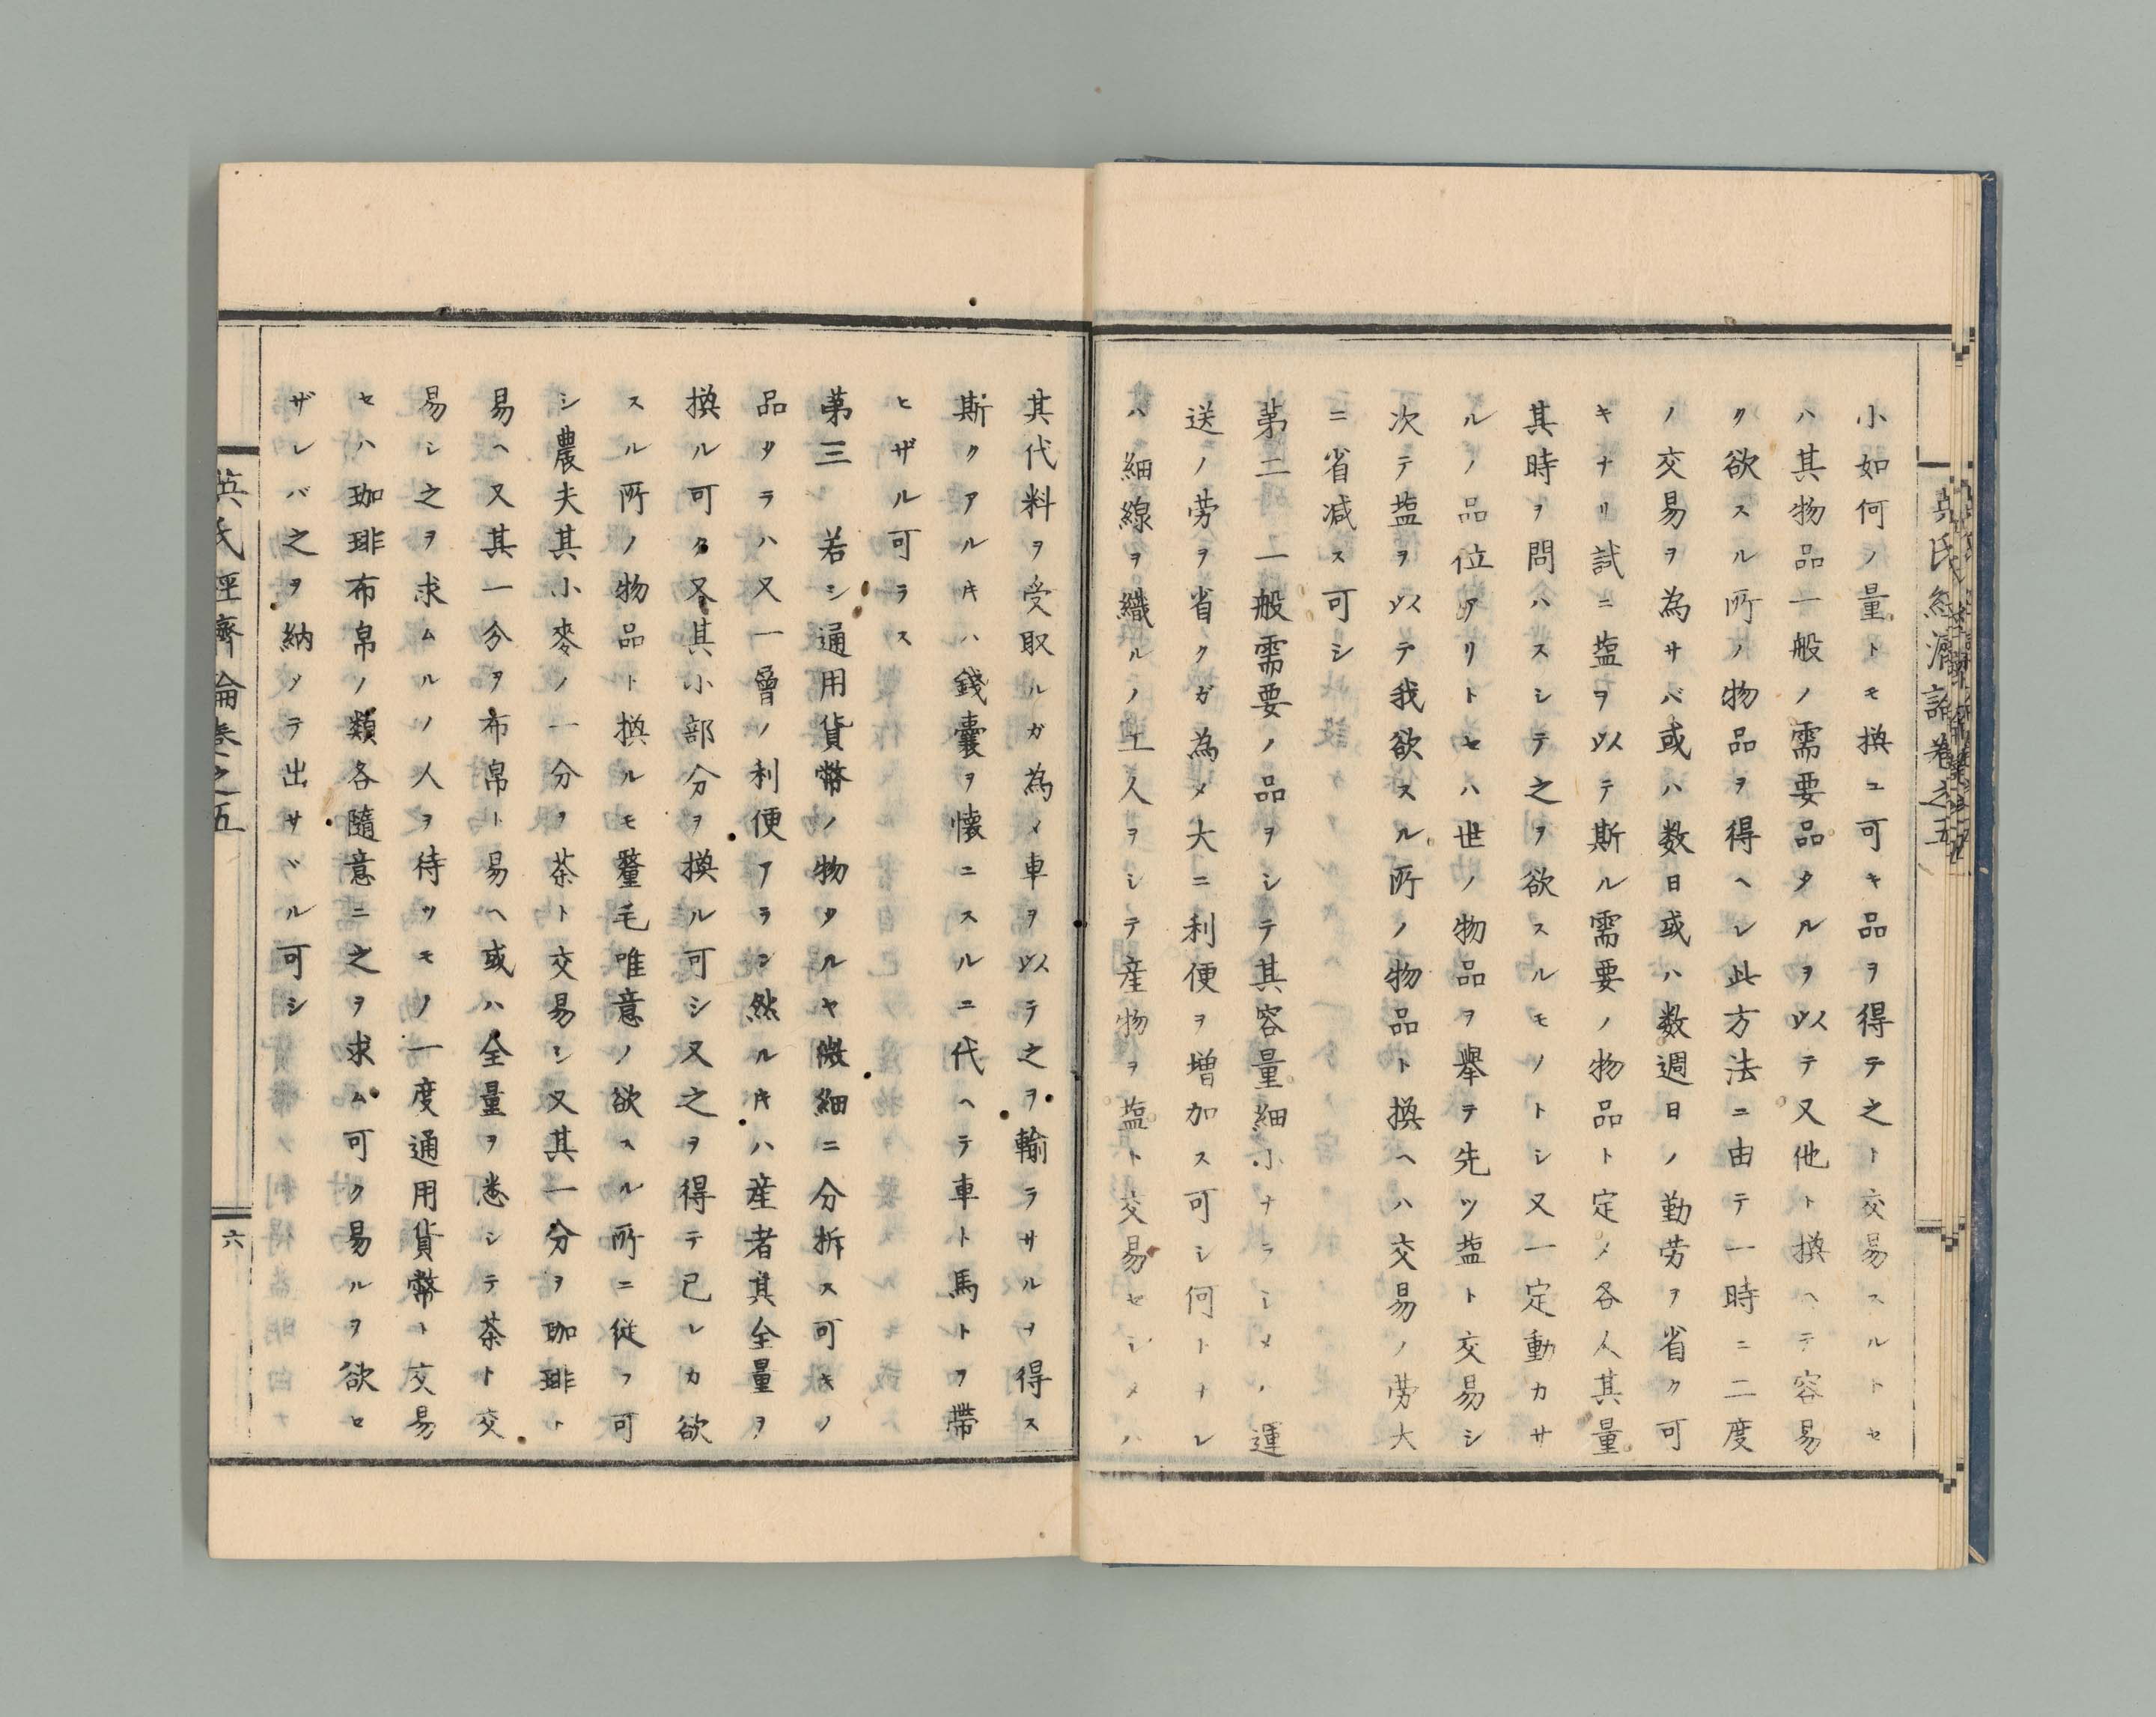 英氏経濟論卷之五
小如何ノ量トモ換ユ可キ品ヲ得テ之ト交易スルトセ
ハ其物品一般ノ需要品タルヲ以テ又他ト換ヘテ容易
ク欲スル所ノ物品ヲ得ヘシ此方法ニ由テ一時ニ二度
ノ交易ヲ為サバ或ハ数日或ハ数週日ノ勤労ヲ省ク可
キナリ試ニ塩ヲ以テ斯ル需要ノ物品ト定メ各人其量
其時ヲ問ハスシテ之ヲ欲スルモノトシ又一定動カサ
ルノ品位アリトセハ世ノ物品ヲ舉テ先ツ塩ト交易シ
次テ塩ヲ以テ我欲スル所ノ物品ト換ヘハ交易ノ労大
ニ省减ス可シ
第二 一般需要ノ品ヲシテ其容量細小ナラシメハ運
送ノ労ヲ省クガ為メ大ニ利便ヲ增加ス可シ何トナレ
ハ細線ヲ織ルノ工人ヲシテ産物ヲ塩ト交易セシメハ
其代料ヲ受取ルガ為メ車ヲ以テ之ヲ輸ラサルヲ得ス
斯クアルキハ錢囊ヲ懐ニスルニ代ヘテ車ト馬トヲ帶
ヒザル可ラス
第三 若シ通用貨幣ノ物タルヤ微細ニ分拆ス可キノ
品タラハ又一層ノ利便アラン然ルキハ産者其全量ヲ
換ル可ク又其小部分ヲ換ル可シ又之ヲ得テ已レカ欲
スル所ノ物品ト換ルモ釐毛唯意ノ欲スル所ニ従フ可
シ農夫其小麥ノ一分ヲ茶ト交易シ又其一分ヲ珈琲ト
易ヘ又其一分ヲ布帛ト易ヘ或ハ全量ヲ悉シテ茶ト交
易シ之ヲ求ムルノ人ヲ待ツモノ一度通用貨幣ト交易
セハ珈琲布帛ノ類各隨意ニ之ヲ求ム可ク易ルヲ欲セ
ザレバ之ヲ納メテ出サヾル可シ
英氏経齊論卷之五
六